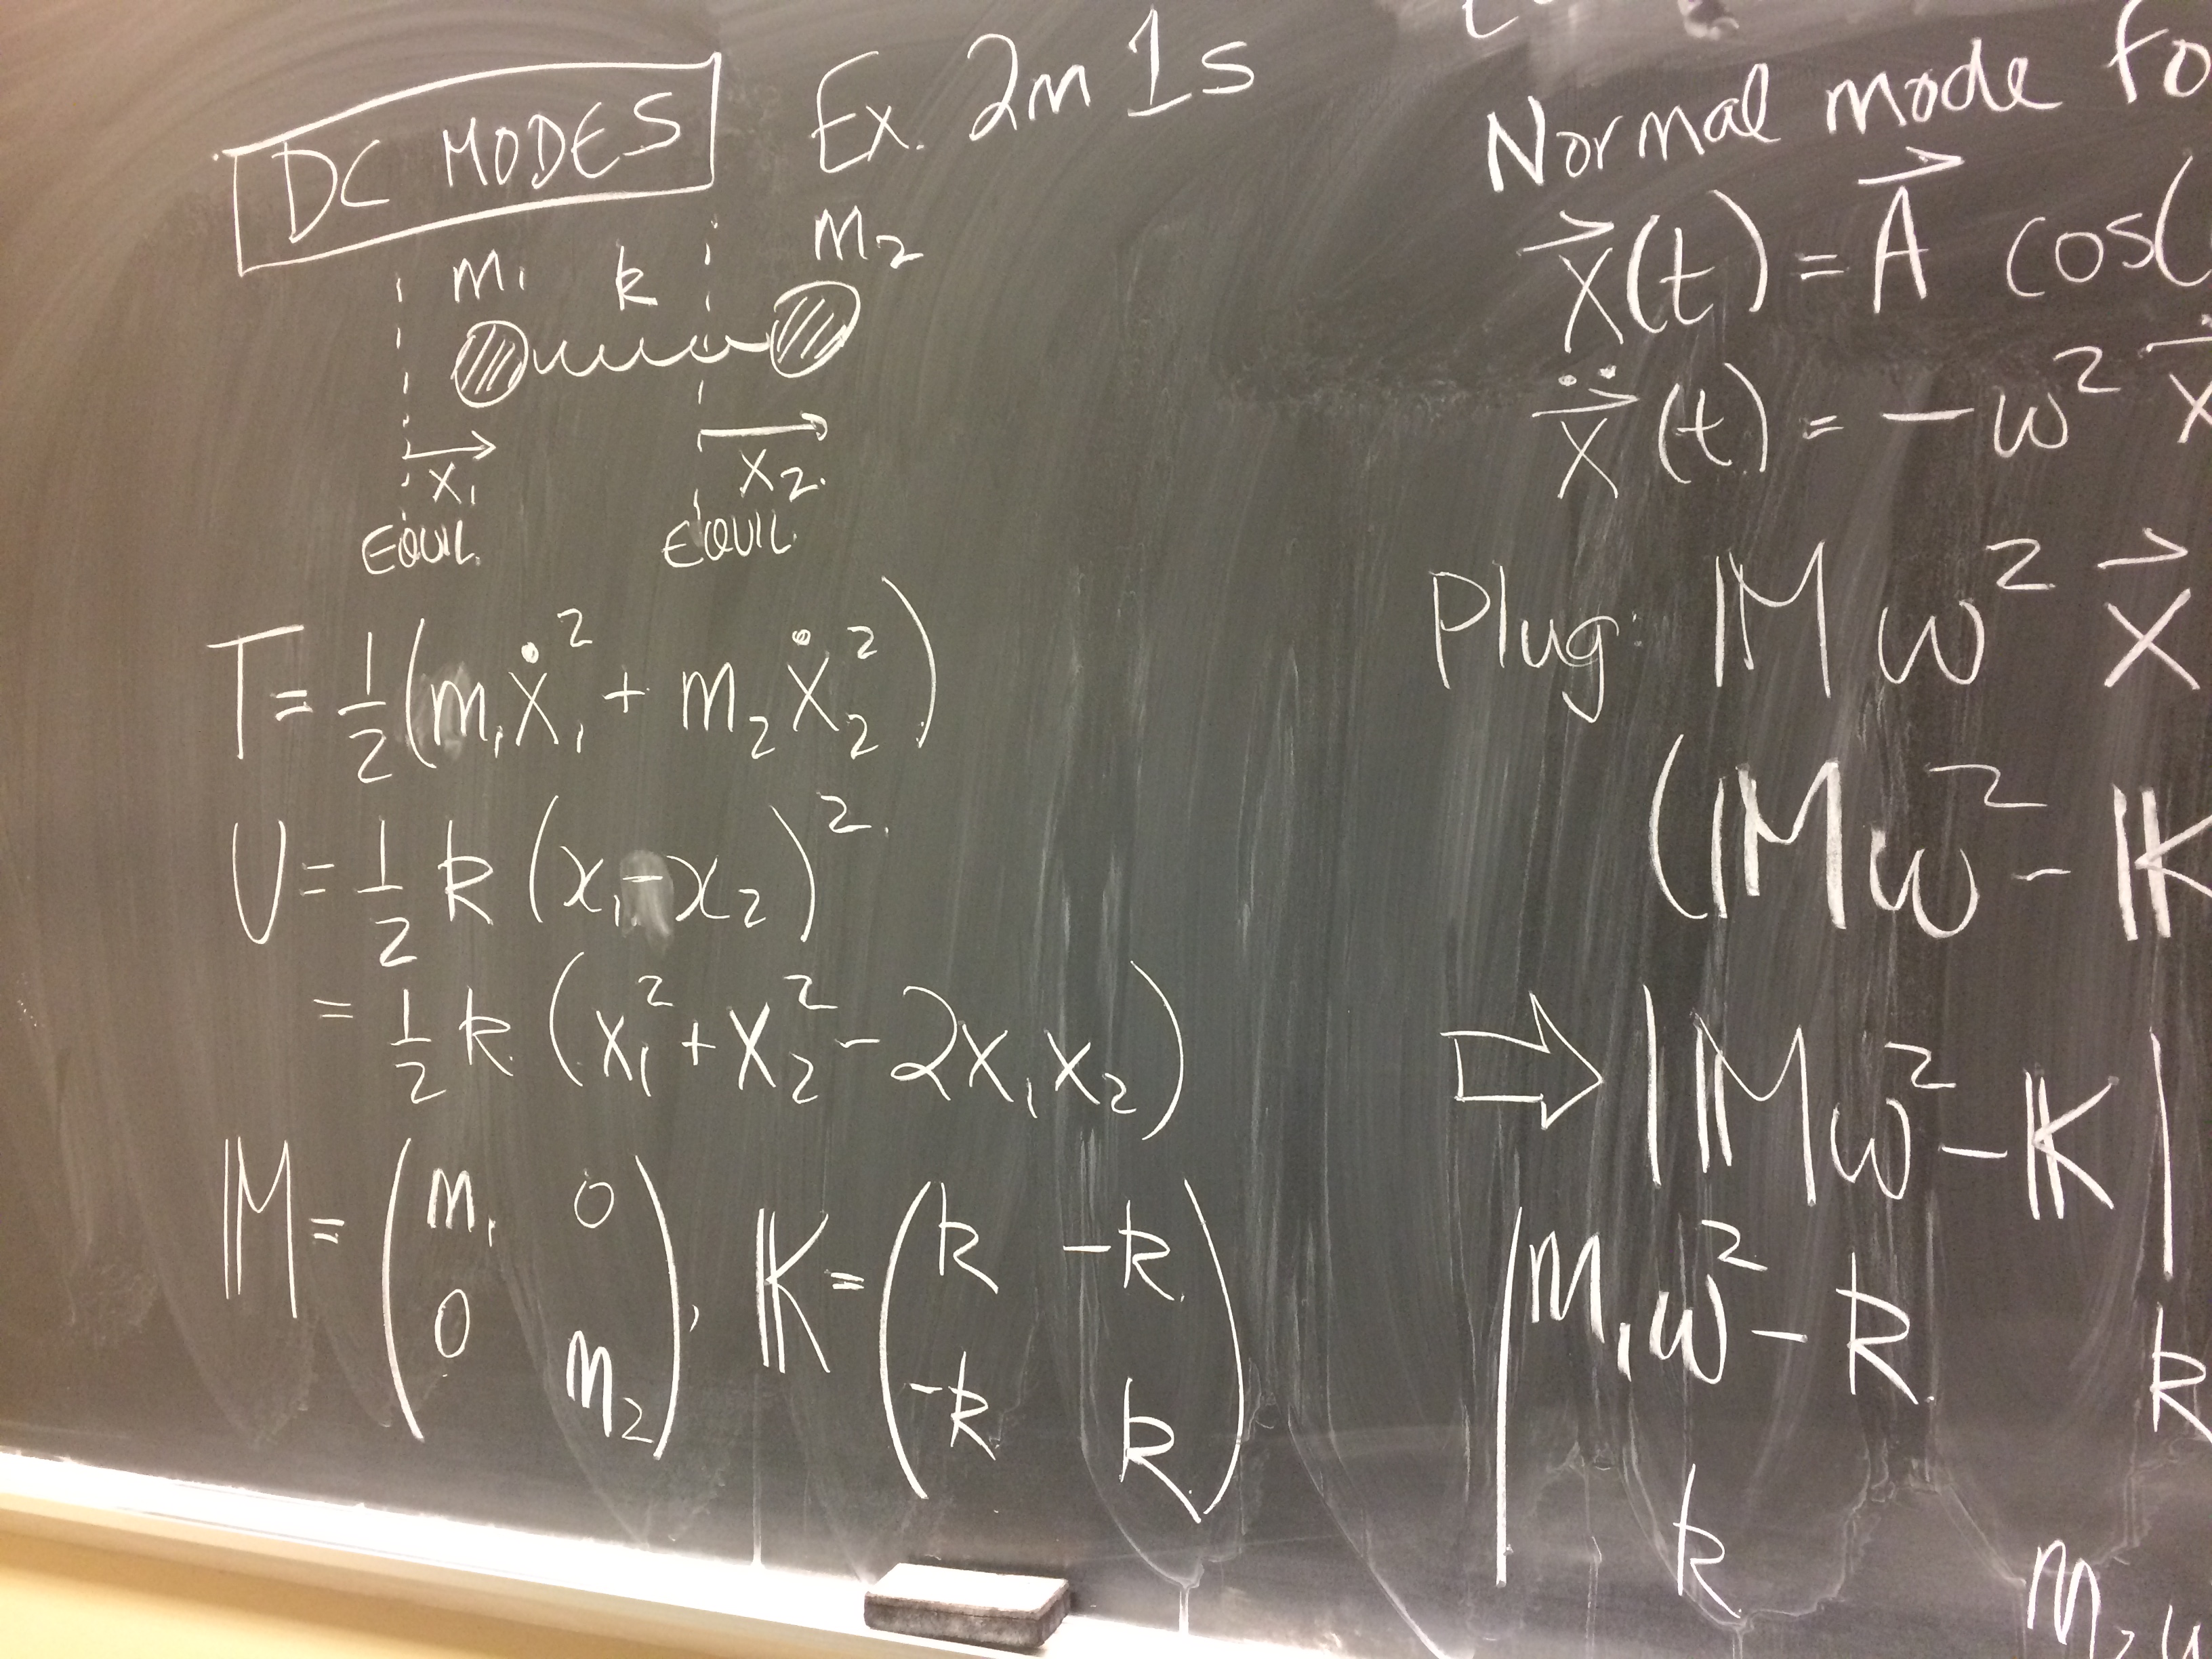 DC MODES Ex. 2m 1s
m₁ k m₂
x₁ x₂
EQUIL. EQUIL.
T = 1/2 (m₁ẋ₁² + m₂ẋ₂²)
U = 1/2 k (x₁ - x₂)².
= 1/2 k (x₁² + x₂² - 2x₁x₂)
𝕄 = (m₁ 0
0 m₂), 𝕂 = (k -k
-k k)
Normal mode
x⃗(t) = A⃗ cos(
ẍ⃗(t) = -ω² x⃗
Plug: 𝕄 ω² x⃗
(𝕄ω² - 𝕂
⇒ |𝕄ω² - 𝕂|
|m₁ω² - k k
k m₂